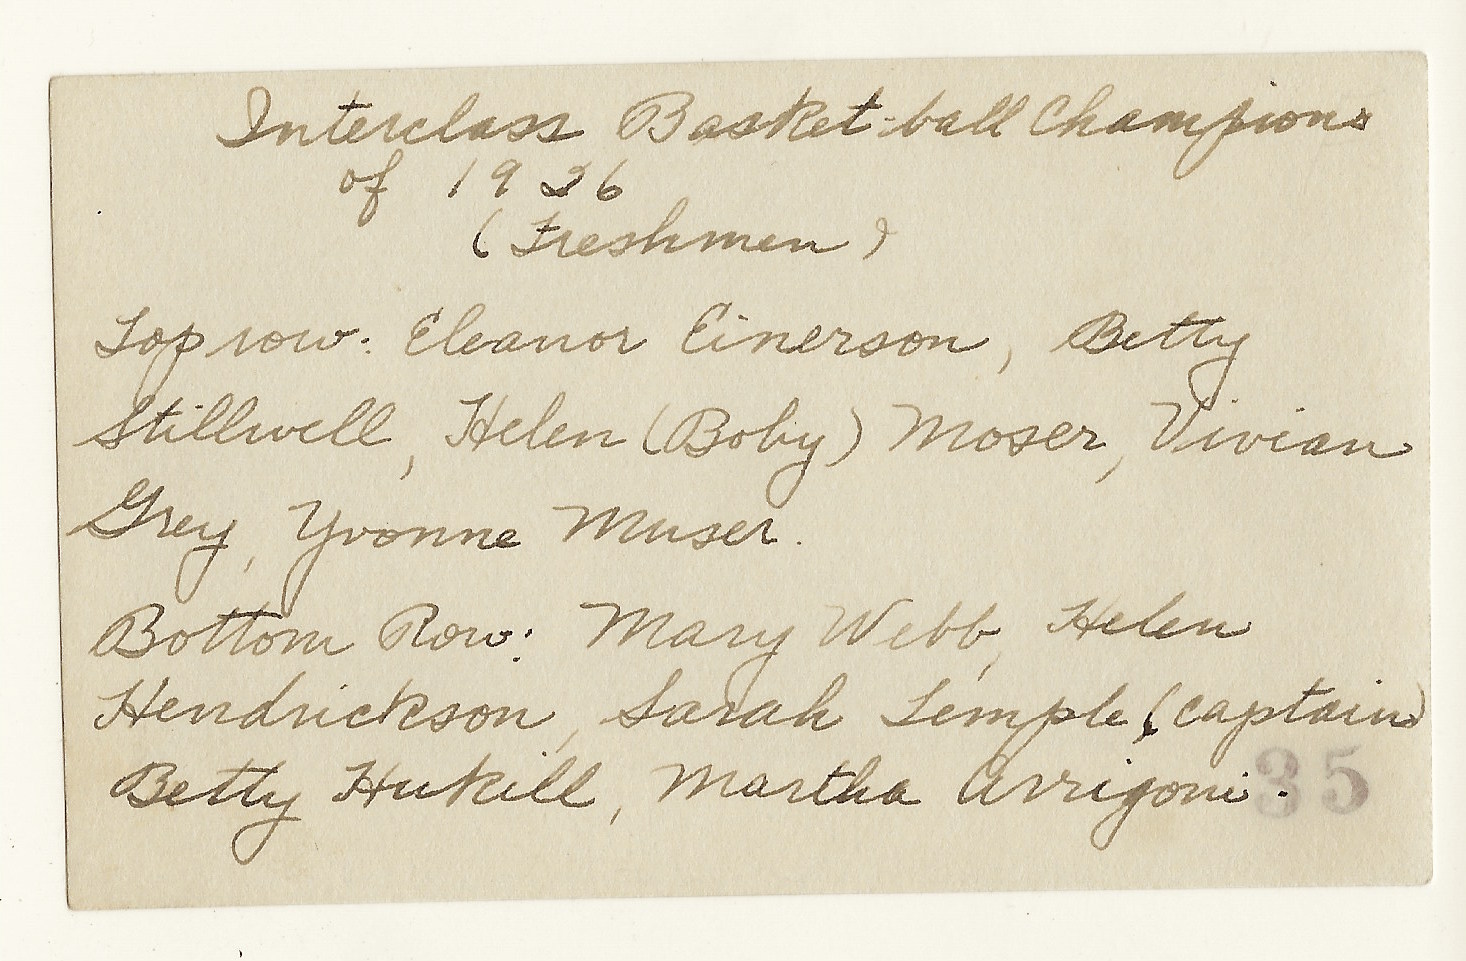 Interclass Basket-ball Champions
of 1926
(Freshmen)
Top row: Eleanor Einerson, Betty
Stillwell, Helen (Boby) Moser, Vivian
Grey, Yvonne Muser.
Bottom Row: Mary Webb, Helen
Hendrickson, Sarah Temple, (captain)
Betty Hukill, Martha Arrigoni.
35